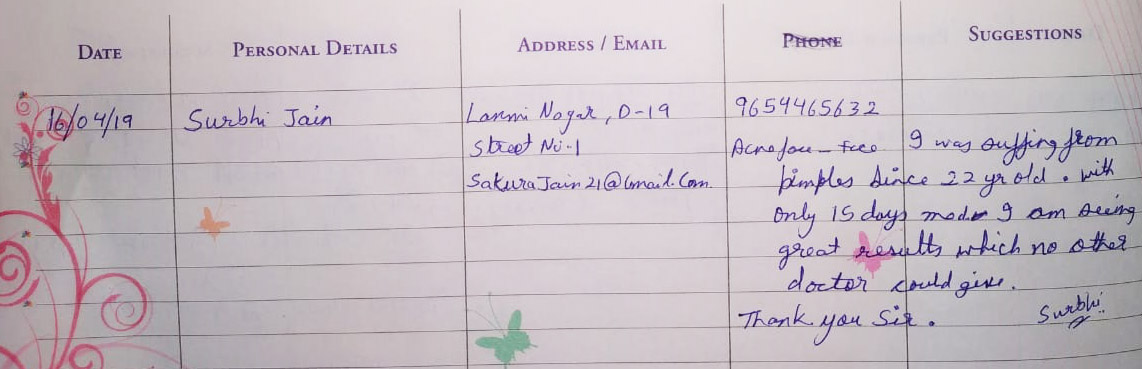 DATE PERSONAL DETAILS ADDRESS / EMAIL PHONE SUGGESTIONS
16/04/19 Surbhi Jain Laxmi Nagar, D-19 9654465632
Street No-1 I was suffing from
SakuraJain21@Gmail.Com. pimples since 22 yr old. with
only 15 days I am seeing
great results which no other
doctor could give.
Thank you Sir. Surbhi